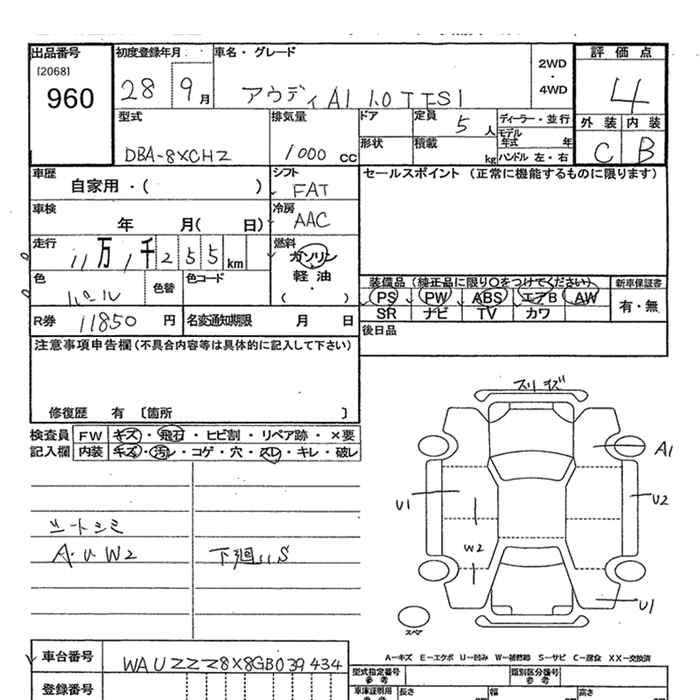 出品番号 初度登録年月 車名・グレード 2WD・4WD 評価点
[2068]
960
28 9月 アウディA1 1.0TFSI 4
型式 排気量 ドア 定員 5人 ディーラー・並行 外装 内装
DBA-8XCHZ 1000cc 形状 積載 kg モデル年式 年 ハンドル 左・右 C B
車歴 自家用・( ) シフト FAT セールスポイント (正常に機能するものに限ります)
車検 年 月( 日) 冷房 AAC
走行 11万1千255km 燃料 ガソリン
軽油
( )
色 パール 色替 色コード 装備品 (純正品に限り○をつけてください) 新車保証書
PS PW ABS エアB AW 有・無
SR ナビ TV カワ
R券 11850円 名変通知期限 月 日 後日品
注意事項申告欄(不具合内容等は具体的に記入して下さい)
修復歴 有 〔箇所 〕
検査員 FW キズ・飛石・ヒビ割・リペア跡・×要
記入欄 内装 キズ・汚レ・コゲ・穴・スレ・キレ・破レ
シートシミ
A・U W2 下廻りS
スリキズ
A1
U1
U2
W2
U1
スペア
A−キズ E−エクボ U−凹み W−補修跡 S−サビ C−腐食 XX−交換済
車台番号 WAUZZZ8X8GB039434
型式指定番号 参考 類別区分番号 参考
登録番号 車庫証明用 参考 長さ 幅 高さ